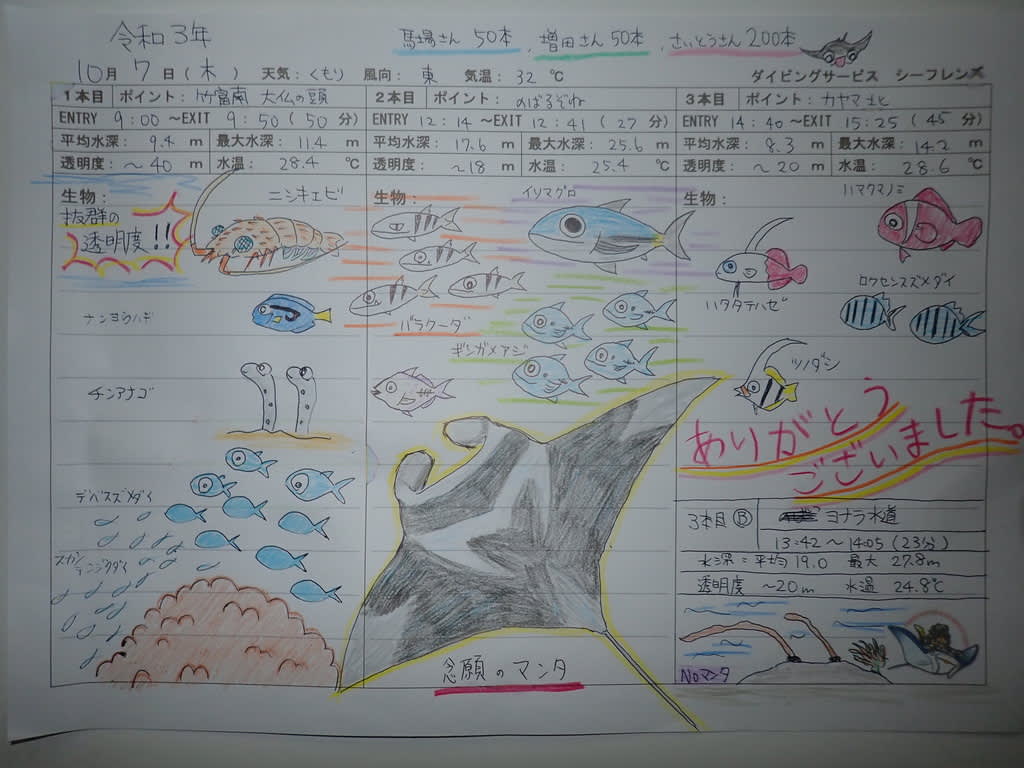 令和3年
馬場さん 50本、増田さん50本、さいとうさん200本
10月 7日(木) 天気:くもり 風向:東 気温:32℃ ダイビングサービス シーフレンズ
1本目 ポイント:竹富南 大仏の頭
ENTRY 9:00 ~EXIT 9:50(50分)
平均水深: 9.4 m 最大水深: 11.4 m
透明度: ~40 m 水温: 28.4 ℃
生物:
抜群の
透明度!!
ニシキエビ
ナンヨウハギ
チンアナゴ
デバスズメダイ
スカシテンジクダイ
2本目 ポイント: のばるそね
ENTRY 12:14 ~EXIT 12:41(27分)
平均水深: 17.6 m 最大水深: 25.6 m
透明度: ~18 m 水温: 25.4 ℃
生物:
イソマグロ
バラクーダ
ギンガメアジ
念願のマンタ
3本目 ポイント: カヤマ北
ENTRY 14:40 ~EXIT 15:25(45分)
平均水深: 8.3 m 最大水深: 14.2 m
透明度: ~20 m 水温: 28.6 ℃
生物:
ハマクマノミ
ハタタテハゼ
ロクセンスズメダイ
ツノダシ
ありがとう
ございました。
3本目 Ⓑ ヨナラ水道
13:42~14:05(23分)
水深:平均19.0 最大 27.8m
透明度 ~20m 水温 24.8℃
Noマンタ